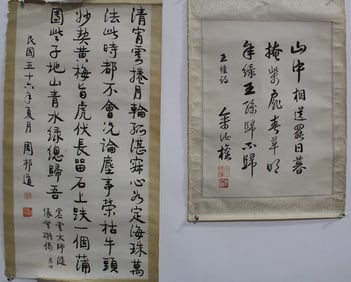 山中相送罷日暮
掩柴扉春草明
年綠王孫歸不歸
王維詩
清宵雲捲月輪孤湛寂心如定海珠萬
法此時都不會況論塵事榮枯牛頭
妙契黃梅旨虎伏長留石上趺一個蒲
團些子地山青水綠總歸吾
雲大師
偈
民國五十六年夏月 周邦道